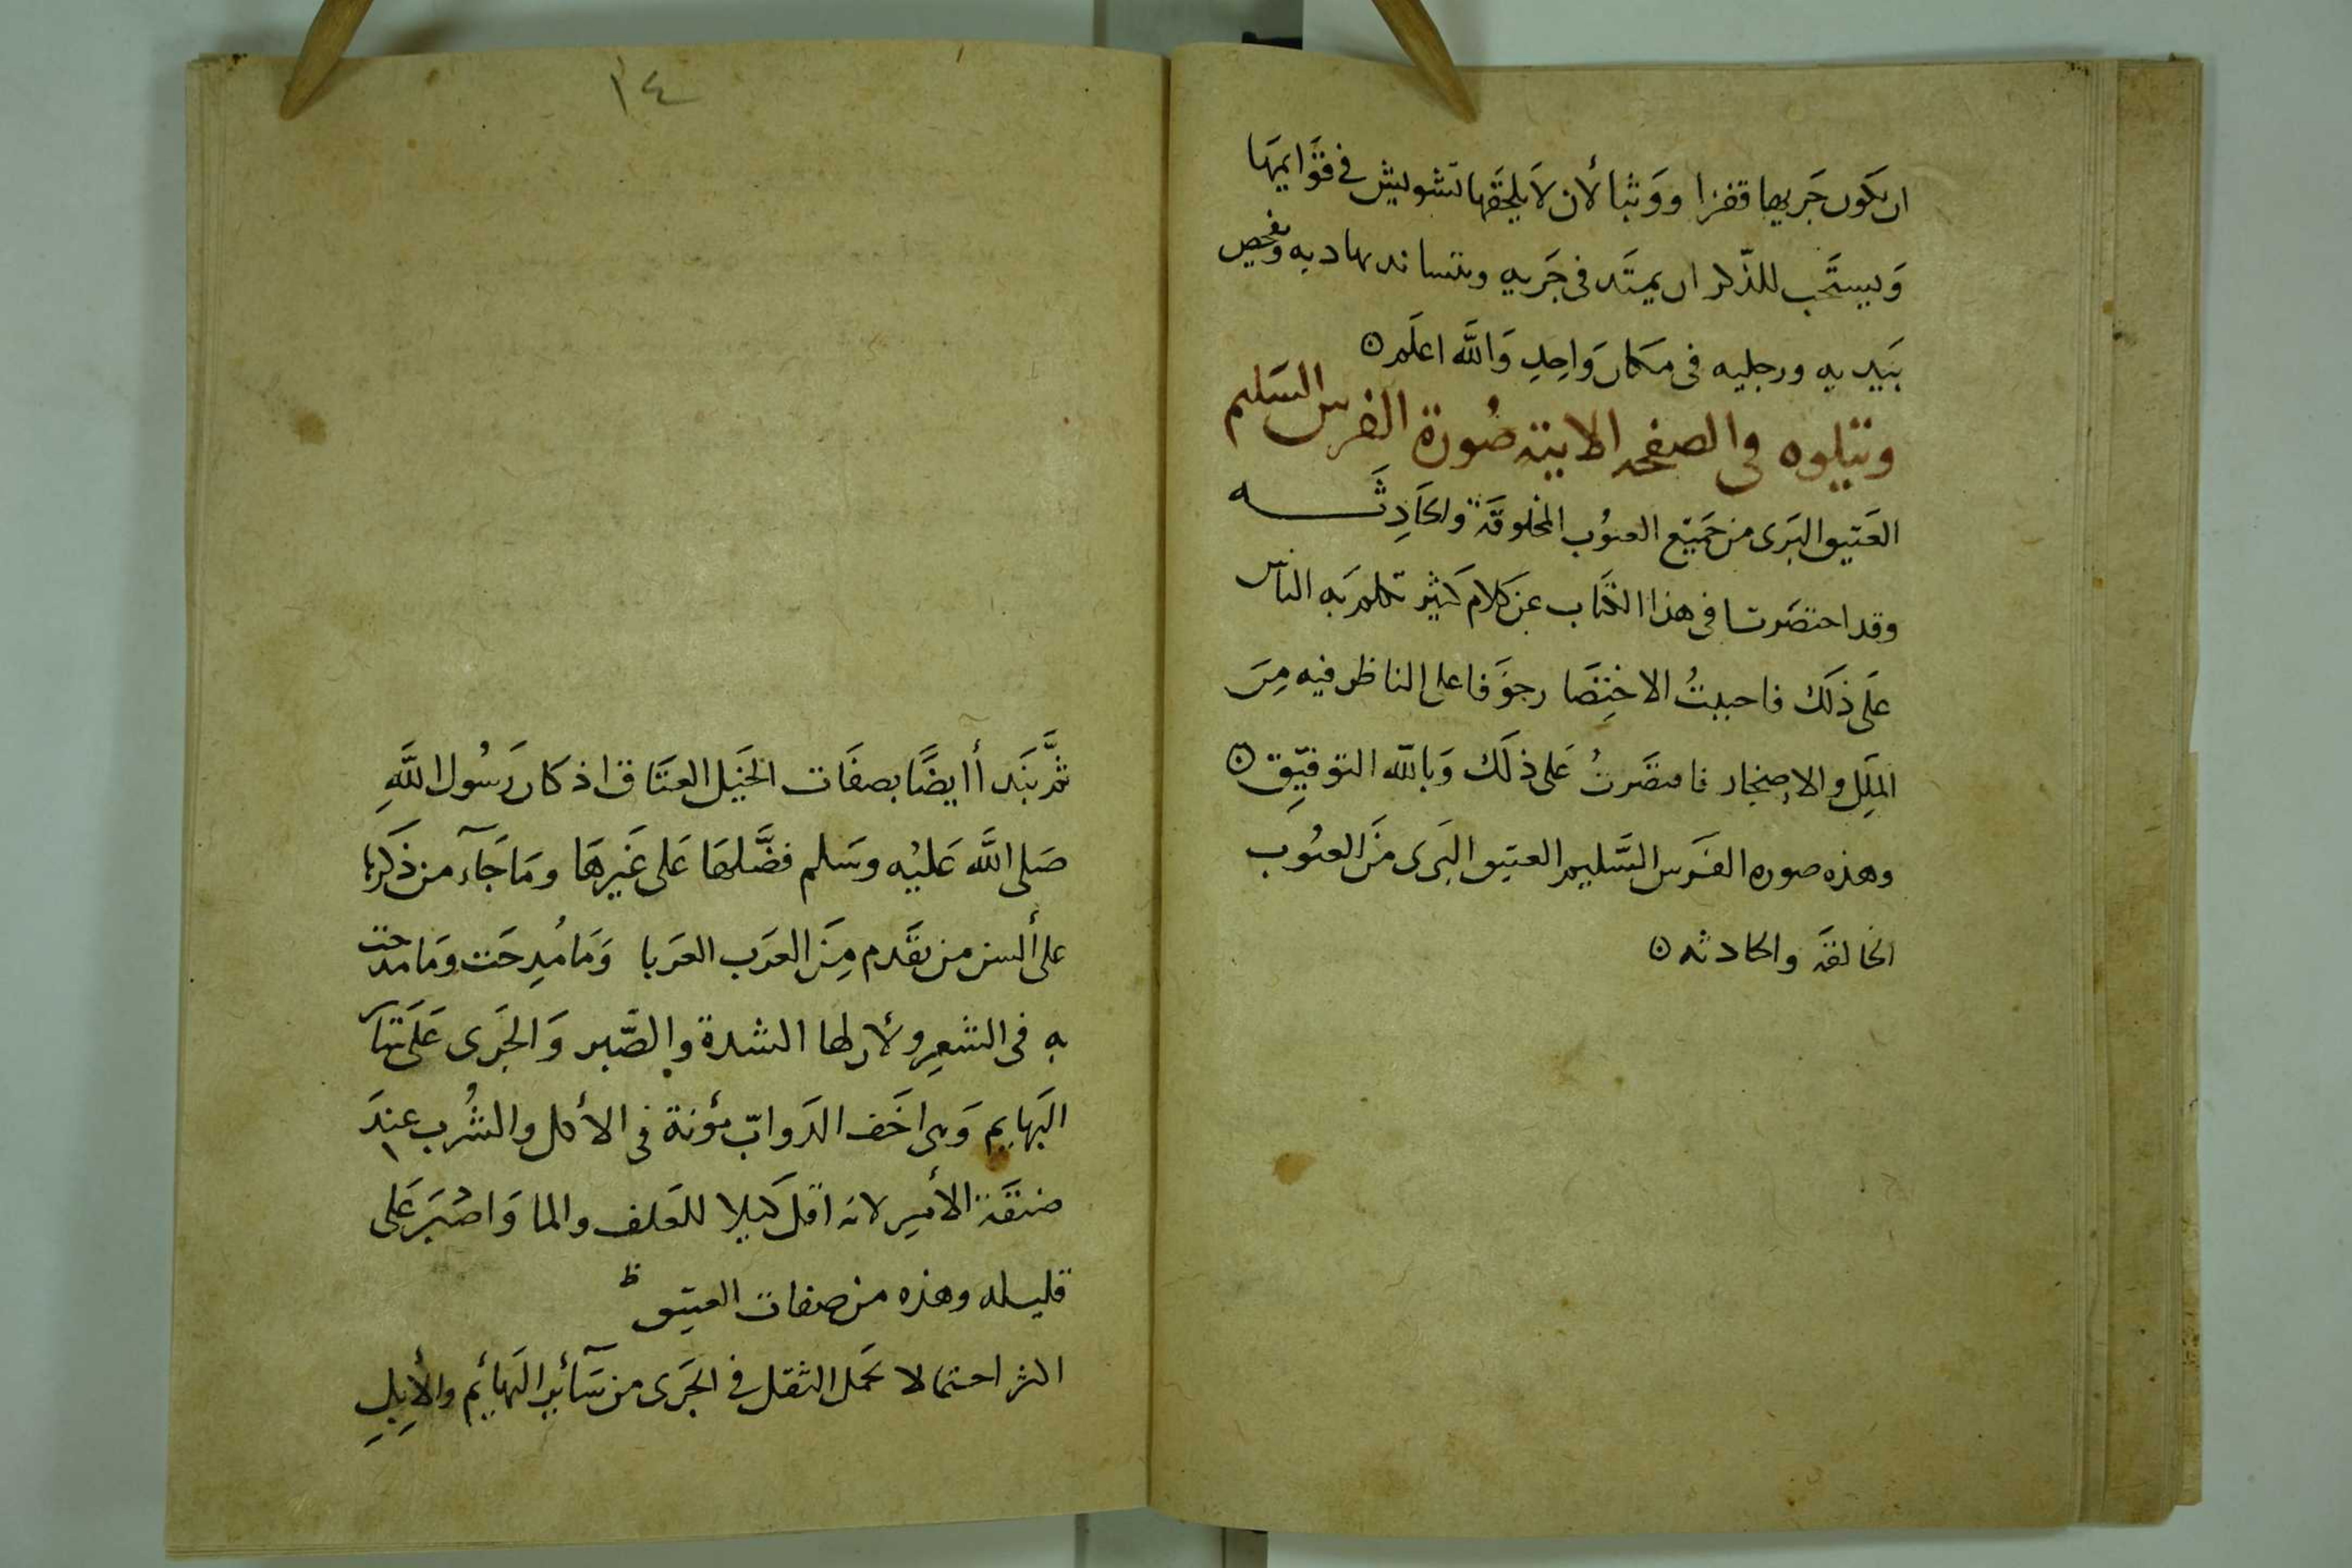 ان يكون جَريها قفزا ووَثبا لأن لا يلحَقها تشويش في قوَايمها
وَيستَحب للذّكر ان يمتَد في جَريه ويتساند بهاديه وَفحص
بيَديه ورجليه في مكان وَاحِدٍ وَاللَّه اعلَم ٥
ويتلوه في الصفحه الاتيته صُورة الفرس السَليم
العَتيق البَرى من جَميَع العيُوب المخلوقَة والحَادِثَه
وقد اختصَرتا في هذا الكتاب عَن كلام كثير تكلم بَه الناس
عَلى ذلَك فاحببتُ الاختِصَا رجوَفا على الناظر فيه مِنَ
الملَلِ والإضجار فاقتصَرتُ عَلى ذلَك وَبالله التوفيِّق ٥
وهذه صوره الفَرَس السَّليم العتيق البَرى منَ العيُوب
الخالقَة والحادثه ٥
١٤
ثمَّ نبَدأ أيضًا بصفَات الخيَل العتَاق اذ كان رَسُول اللَّهِ
صَلى اللَّه عَليْه وسَلم فضَّلهَا عَلى غَيرهَا ومَا جَآء من ذكَرها
على ألسن من تقَدم مِنَ العرَب العرَبا وَمَا مُدِحَت ومَا مدحت
به في الشعِر ولأن لها الشدة والصَّبر وَالجَرى عَلَى سَآ
البَهايم وَهى اخَف الدَوابّ مؤنة في الأكل والشُرب عندَ
ضنقَة الأمير لانه اقل كيلا للعَلف والما وَاصْبَر عَلى
قليله وهذه من صفات العتيق ط
اكثر احتمالا لحمَل الثقل في الجَرى من سَآئِر البَهائم والأبِلِ